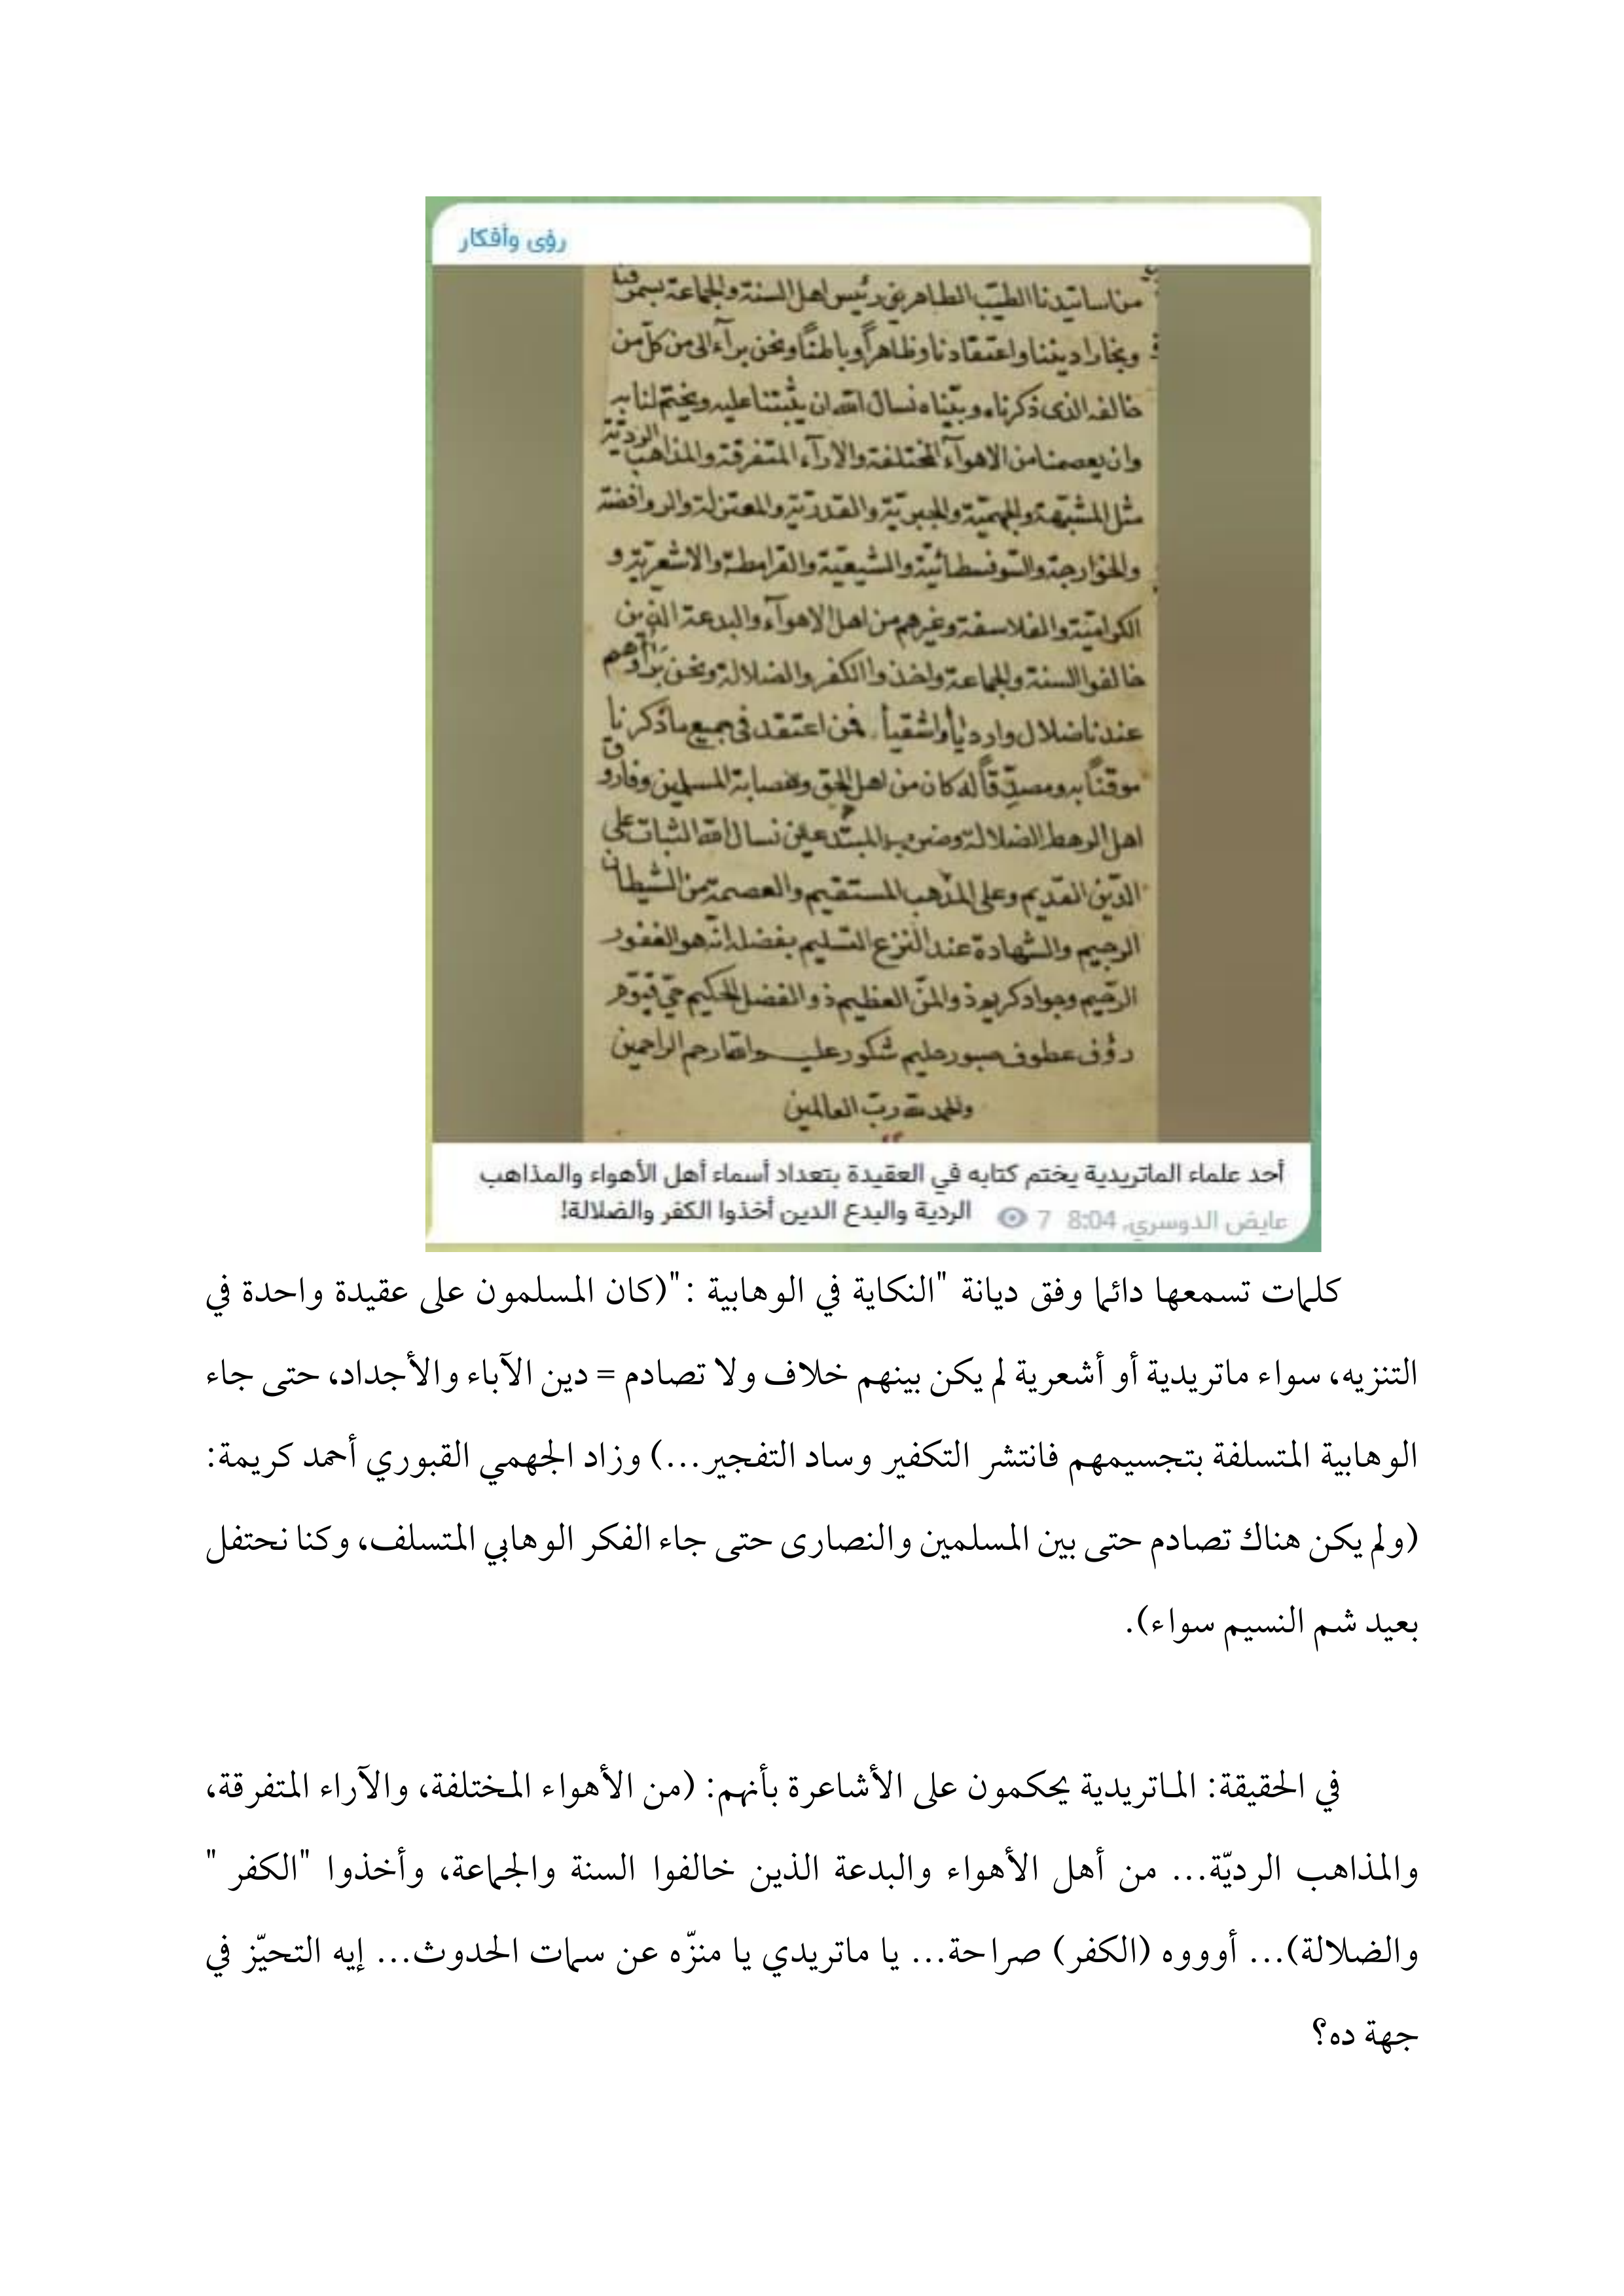 رؤى وأفكار
من اساتيدنا الطيب الطاهرين رئيس اهل السنة والجماعة بسمرقند
وبخارا ديننا واعتقادنا وظاهراً وباطناً ونحن برآء الى من كل من
خالفه الذى ذكرناه وبيّناه نسال الله ان يثبّتنا عليه ويختم لنا به
وان يعصمنا من الاهوآء المختلفة والارآء المتفرقة والمذاهب الرديّة
مثل المشبّهة والجهميّة والجبريّة والقدريّة والمعتزلة والروافضة
والخوارجة والسوفسطائيّة والشيعيّة والقرامطة والاشعريّة و
الكراميّة والفلاسفة وغيرهم من اهل الاهوآء والبدعة الذين
خالفوا السنة والجماعة واخذوا الكفر والضلالة ونحن برآؤهم
عندنا ضلال وارديأ واشقيأ فمن اعتقد فى جميع ماذكرنا
موقناً به ومصدّقاً له كان من اهل الحق وعصابة المسلمين وفارق
اهل الرهط الضلالة المبتدعين نسال الله الثبات على
الدّين القديم وعلى المذهب المستقيم والعصمة من الشيطان
الرجيم والشهادة عند النزع التسليم بفضله انّه هو الغفور
الرّحيم وجواد كريم ذو المنّ العظيم ذو الفضل الحكيم حيّ قيّوم
رؤف عطوف صبور حليم شكور الراحمين
والحمد لله ربّ العالمين
أحد علماء الماتريدية يختم كتابه في العقيدة بتعداد أسماء أهل الأهواء والمذاهب
الردية والبدع الدين أخذوا الكفر والضلالة!
عايض الدوسري، 8:04 7
كلمات تسمعها دائما وفق ديانة "النكاية في الوهابية :"(كان المسلمون على عقيدة واحدة في
التنزيه، سواء ماتريدية أو أشعرية لم يكن بينهم خلاف ولا تصادم = دين الآباء والأجداد، حتى جاء
الوهابية المتسلفة بتجسيمهم فانتشر التكفير وساد التفجير...) وزاد الجهمي القبوري أحمد كريمة:
(ولم يكن هناك تصادم حتى بين المسلمين والنصارى حتى جاء الفكر الوهابي المتسلف، وكنا نحتفل
بعيد شم النسيم سواء).
في الحقيقة: الماتريدية يحكمون على الأشاعرة بأنهم: (من الأهواء المختلفة، والآراء المتفرقة،
والمذاهب الرديّة... من أهل الأهواء والبدعة الذين خالفوا السنة والجماعة، وأخذوا "الكفر "
والضلالة)... أوووه (الكفر) صراحة... يا ماتريدي يا منزّه عن سمات الحدوث... إيه التحيّز في
جهة ده؟